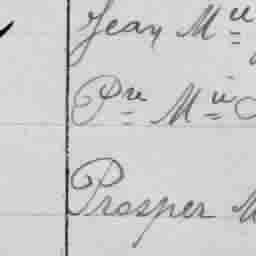 Jean Mie
Pre Mie
Prosper M